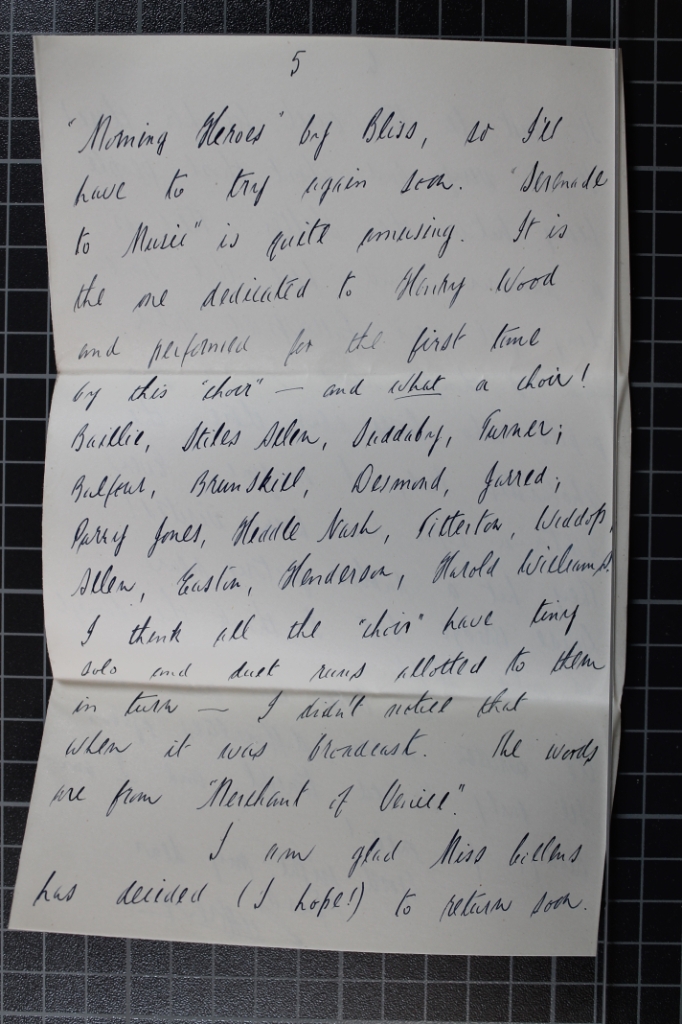 5
"Morning Heroes" by Bliss, so I'll
have to try again soon. "Serenade
to Music" is quite amusing. It is
the one dedicated to Henry Wood
and performed for the first time
by this "choir" — and what a choir!
Baillie, Stiles Allen, Suddaby, Turner;
Balfour, Brunskill, Desmond, Jarred;
Parry Jones, Heddle Nash, Titterton, Widdop,
Allen, Easton, Henderson, Harold Williams.
I think all the "choir" have tiny
solo and duet runs allotted to them
in turn — I didn't notice that
when it was broadcast. The words
are from "Merchant of Venice".
I am glad Miss
has decided (I hope!) to return soon.